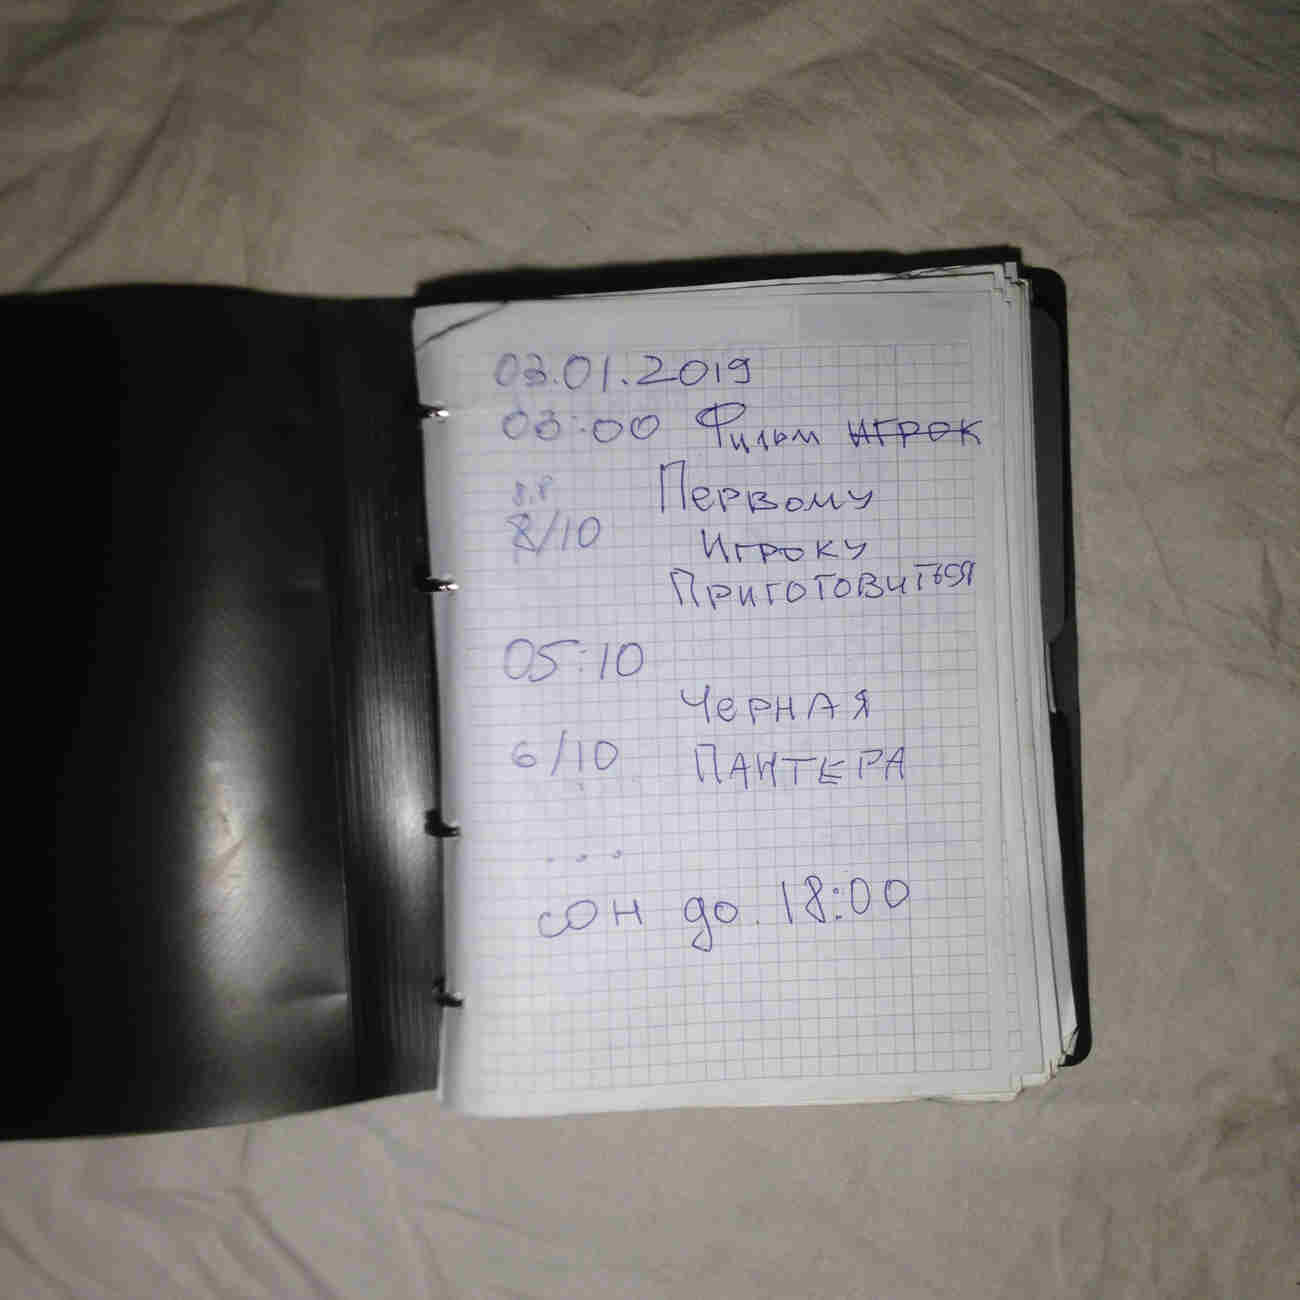 03.01.2019
03:00 Фильм игрок
Первому
8/10
Игроку
Приготовиться
05:10
Черная
6/10 Пантера
...
сон до 18:00